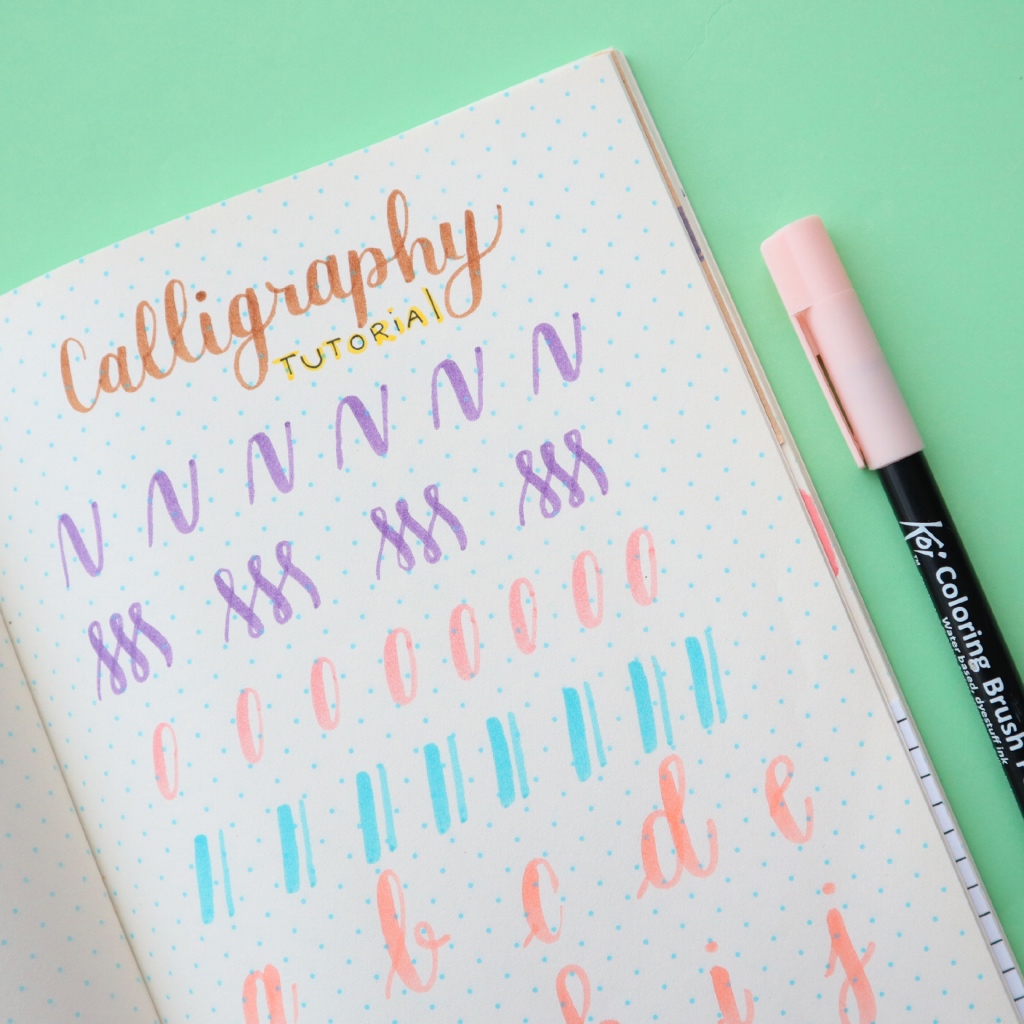 Calligraphy
TUTORiAl
N N N N N N
O O O O O O O
a b c d e
h i j
Koi™ Coloring Brush P
Water based, dyestuff ink